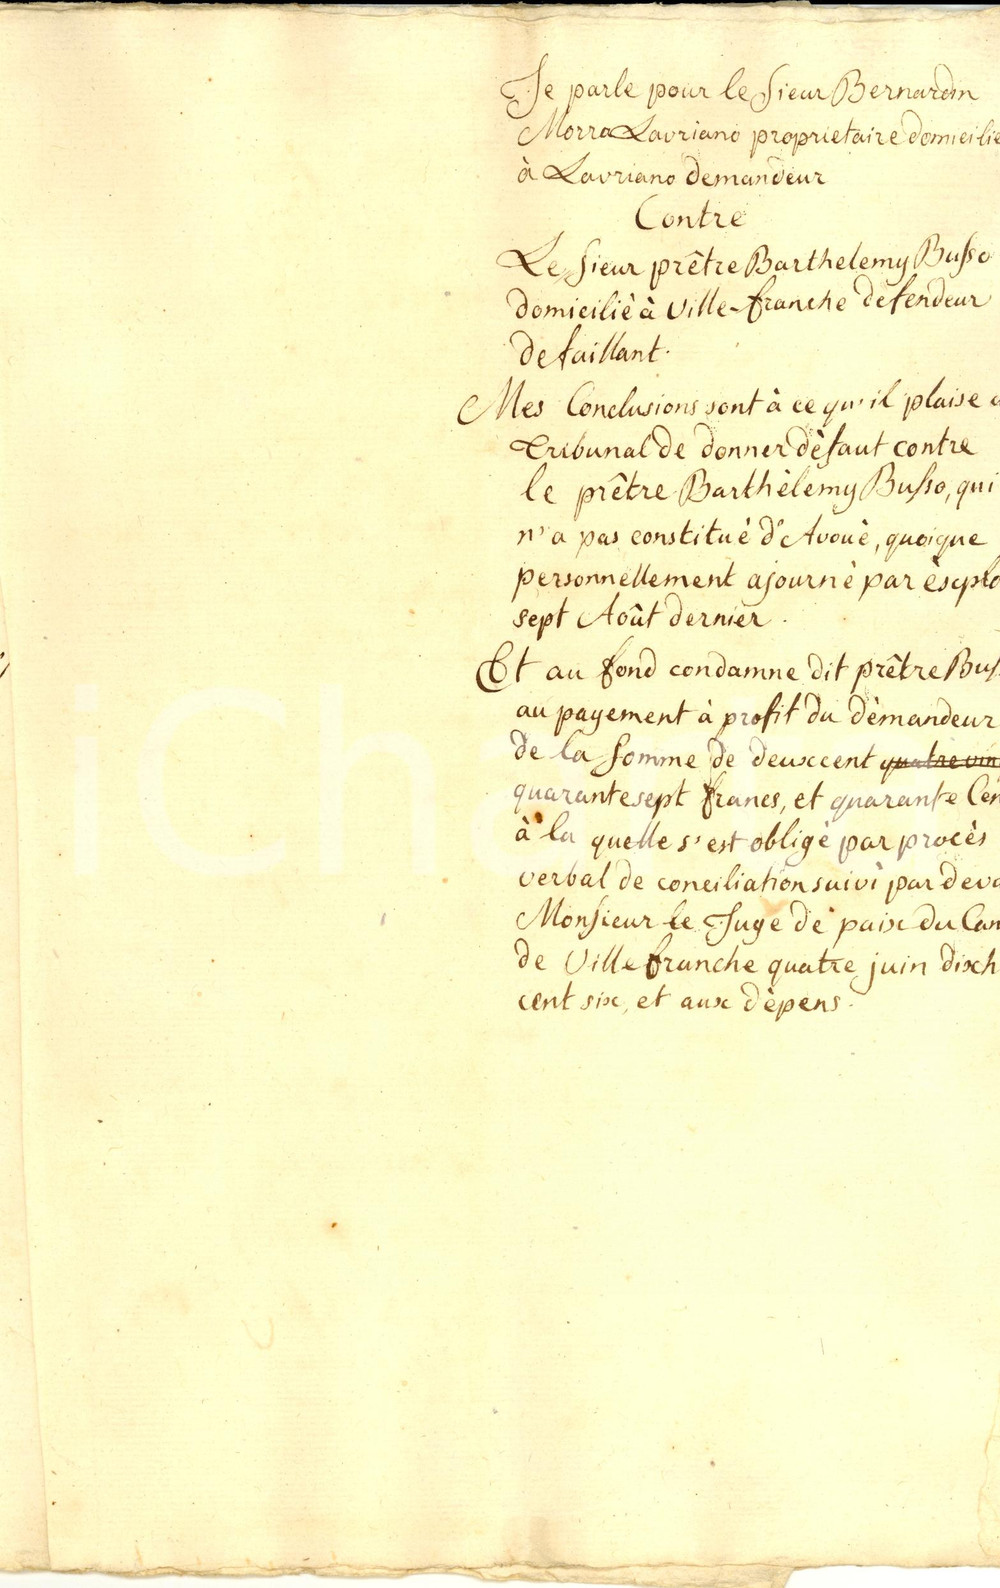 Je parle pour le Sieur Bernardin
Morra Lavriano proprietaire domicilié
à Lavriano demandeur
Contre
Le Sieur prêtre Barthelemy Busso
domicilié à Ville-franche defendeur
defaillant.
Mes Conclusions sont à ce qu'il plaise a
Tribunal de donner dèfaut contre
le prêtre Barthèlemy Busso, qui
n'a pas constituè d'Avouè, quoique
personnellement ajournè par èxplo
sept Août dernier.
Et au fond condamne dit prêtre Bus
au payement à profit du dèmandeur
de la Somme de deuxcent quatre vin
quarantesept francs, et quarante Cen
à la quelle s'est obligè par procès
verbal de conciliation suivi par deva
Monsieur le Juge de paix du Can
de Ville franche quatre juin dixh
cent six, et aux dèpens.